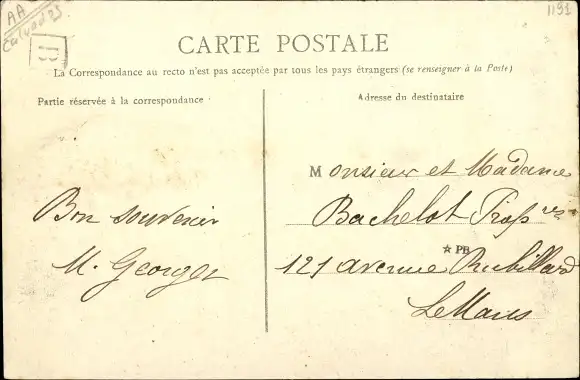 AA
Calvados
B
1191
CARTE POSTALE
La Correspondance au recto n'est pas acceptée par tous les pays étrangers (se renseigner à la Poste)
Partie réservée à la correspondance
Adresse du destinataire
Bon souvenir
M. Georges
Monsieur et Madame
Bachelot Profrs
☆ PB
121 avenue Rubillard
Le Mans